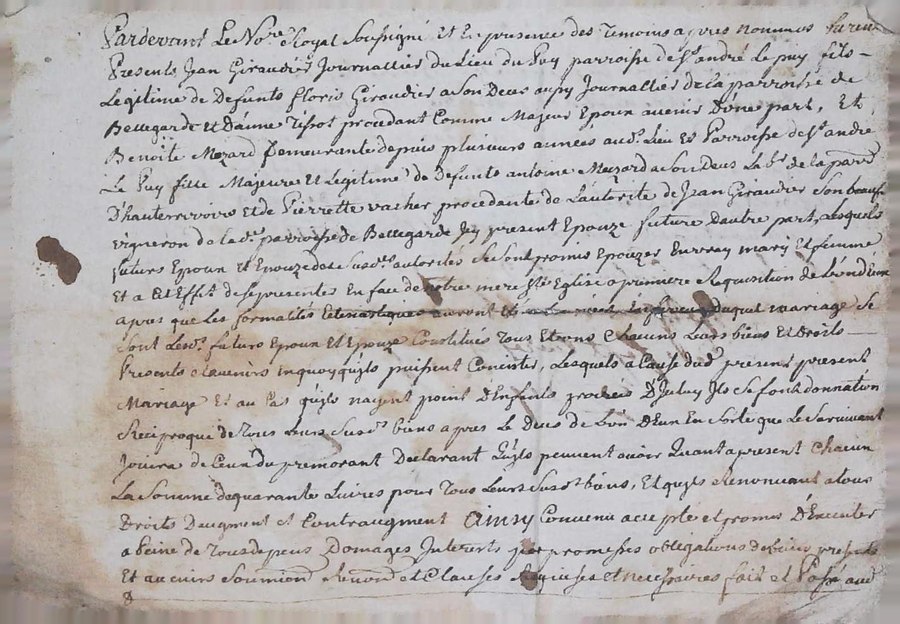 Pardevant Le No.re Royal Soussigné Et En presence des temoins apres nommes furent
Presents Jean Giraudier Journallier du Lieu du Puy parroisse de St andré Le puy fils
Legitime de Defunts floris Giraudier a Son Deces aussy Journallier de la parroisse de
Bellegarde et D'anne Tissot procedant Comme Majeur Epoux avenir D'une part, Et
Benoite Mozard Demeurante depuis plusieurs années aud. Lieu Et Parroisse de St andré
Le Puy fille Majeure et Legitime de Defunts antoine Mozard a Son Deces La.br de la parr.
D'hauterivoire et de Pierrette vacher procedante de L'autorité de Jean Giraudier Son beaufr
vigneron de lad. parroisse de Bellegarde Jcy present Epouze future Dautre part, Lesquels
futurs Epoux et Epouze des Susd. autorités Se Sont promis Epouzer En vray mary et femme
Et a Cet Effet de Se presenter En face de notre mere Ste Eglise a premiere Requisition de L'un d'eux
apres que Les formalités auront En faveur duquel mariage Se
Sont Lesd. futurs Epoux et Epouze Constitués Tous Et Uns Chacuns Leurs biens Et droits
Presents et avenirs En quoy qu'ils puissent Concister, Lesquels a Cause dud. present present
Mariage Et au Cas qu'ils nayent point d'Enfants procrées D'Jceluy Jls Se font donnation
Reciproque de Tous Leurs Susd. biens apres Le Deces de Lun D'Eux En Sorte que Le Survivant
Jouira de Ceux du premourant Declarant qu'ils peuvent avoir quant a present Chacun
La Somme de quarante Livres pour Tous Leurs Susd. biens, Et qu'ils Renoncent a tous
Droits Daugment et Contraugment Ainsy Convenu accepté et promis D'Executer
a Peine de Tous depens Domages Interests par promesses obligations de biens presents
Et avenirs Soumions Renon.ons et Clauses Requises et necessaires fait et Passé aud.